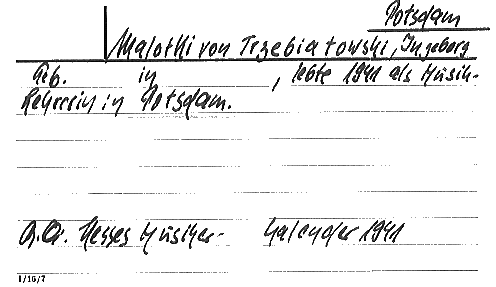 Potsdam
Malotki von Trzebiatowski, Ingeborg
Geb. in , lebte 1941 als Musik-
lehrerin in Potsdam.
Hesses Musiker- Kalender 1941
1/16/7